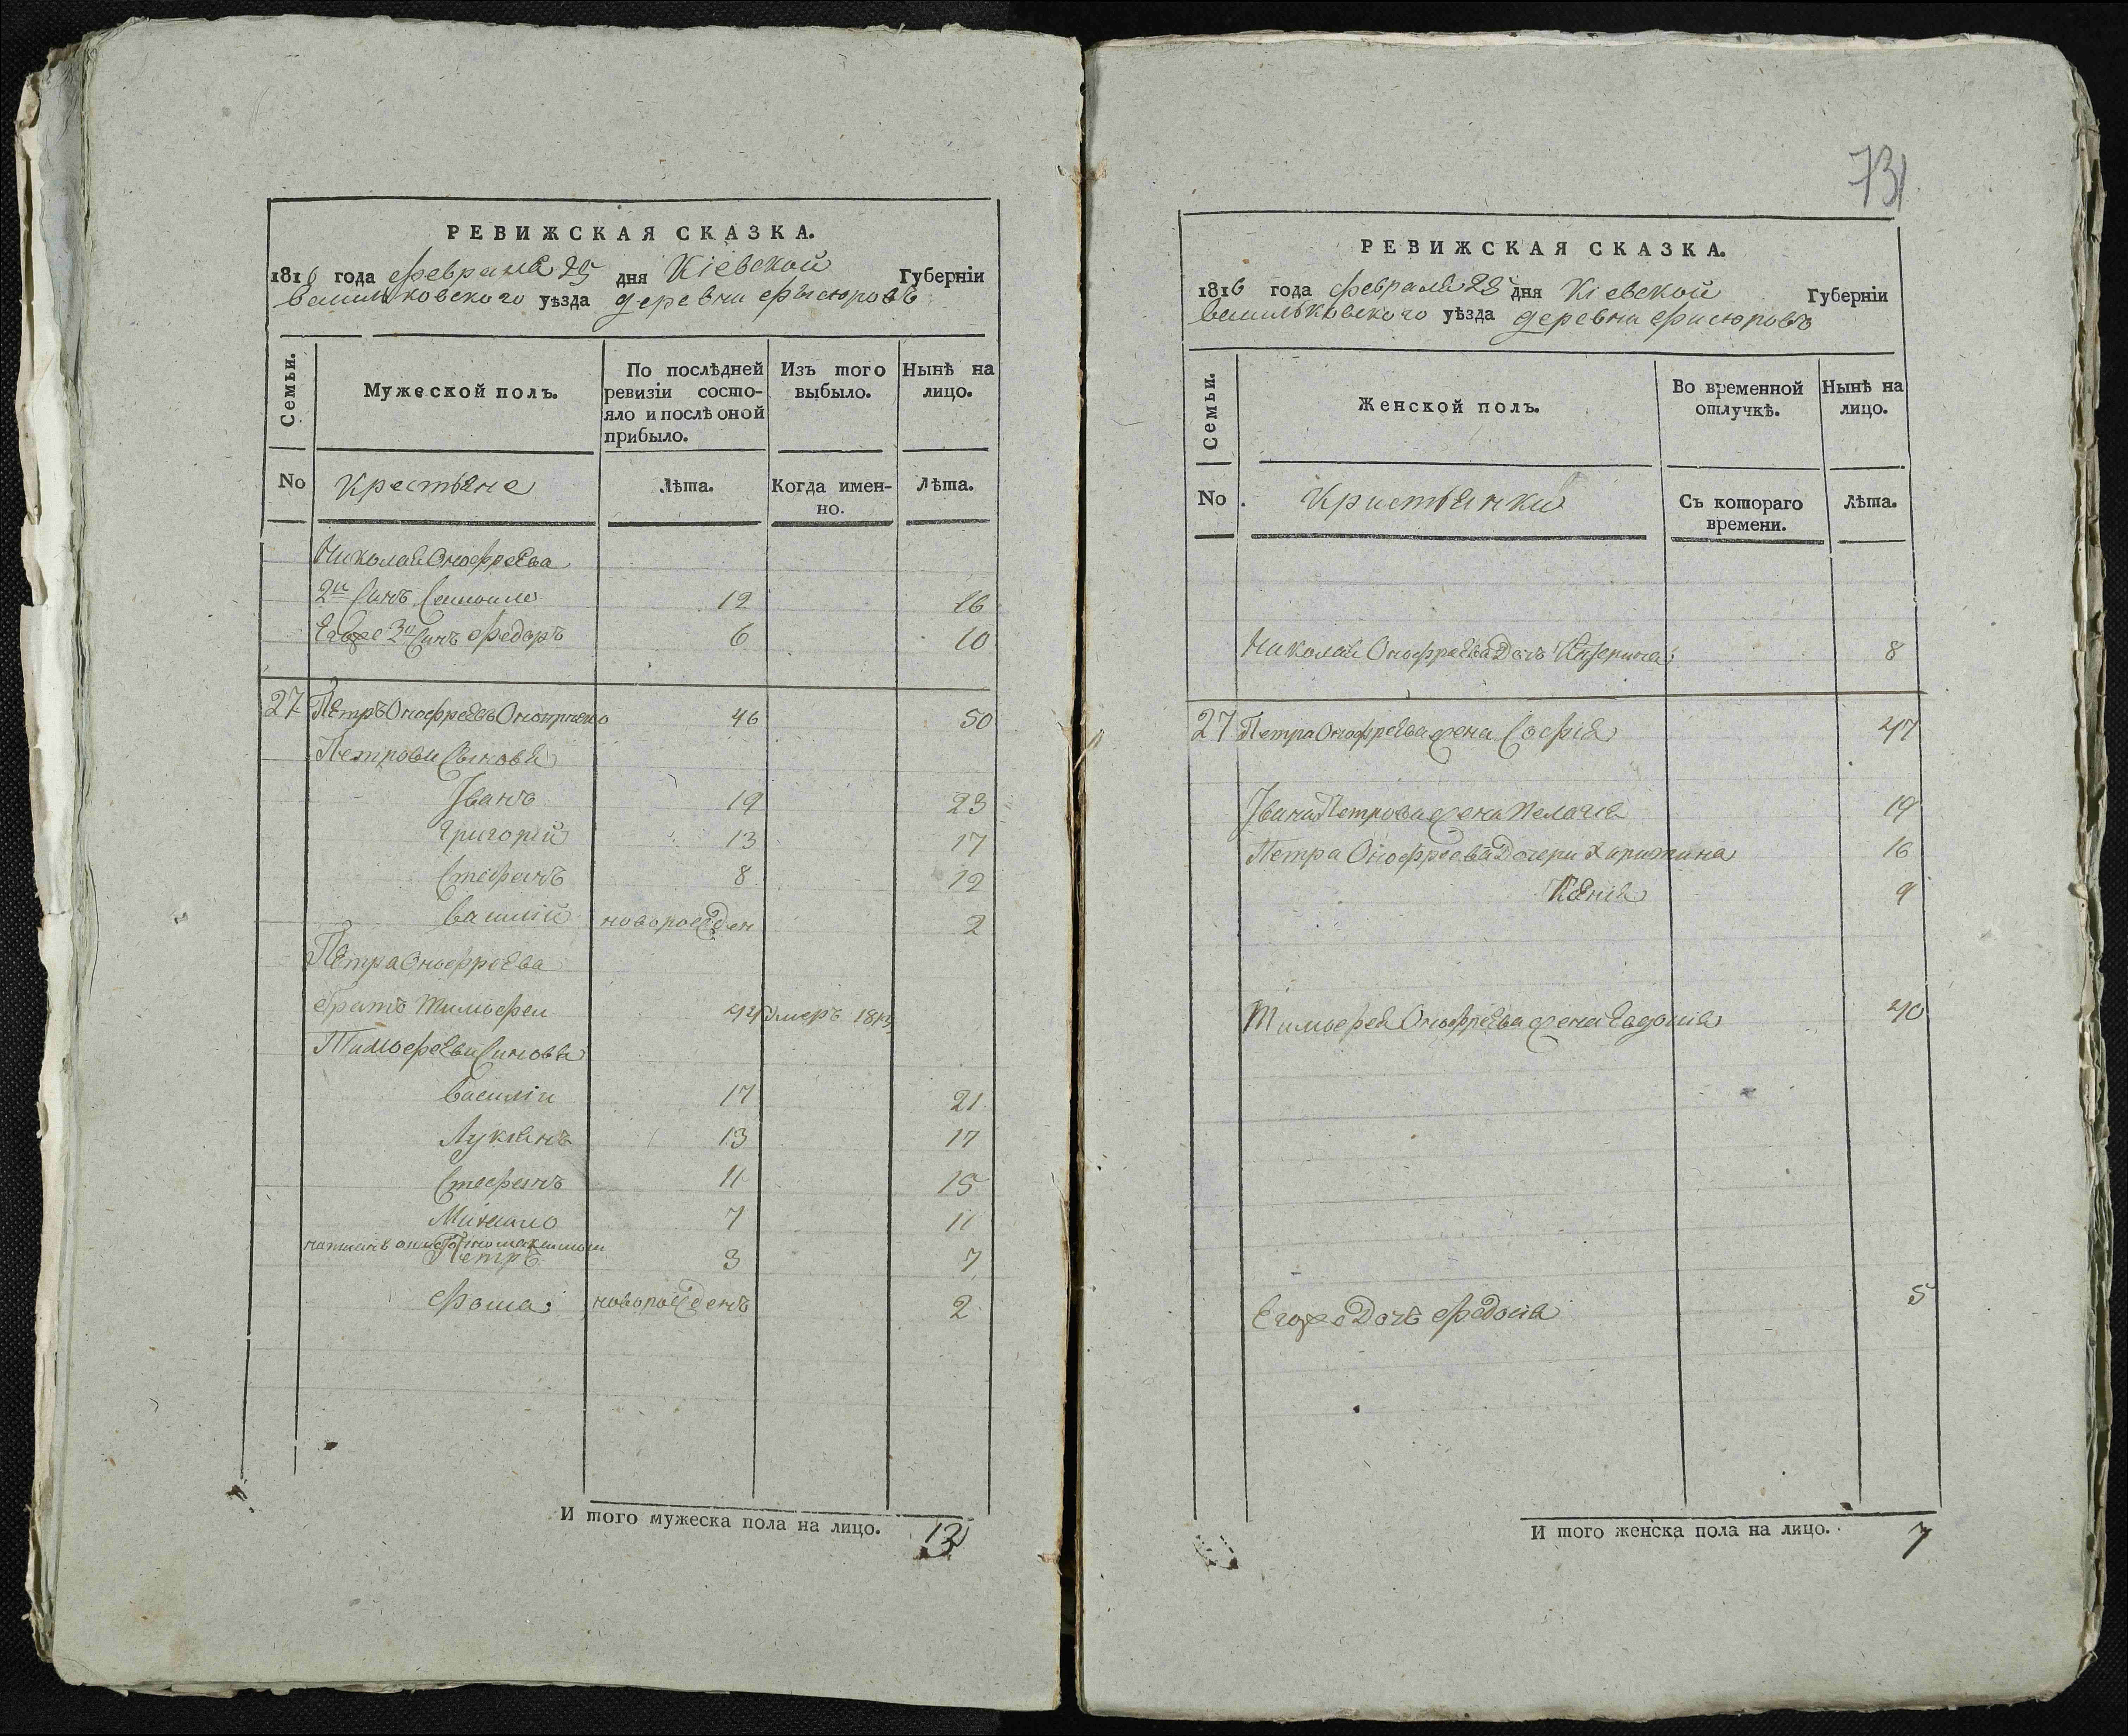 РЕВИЖСКАЯ СКАЗКА.
1816 года февраля 25 дня Кіевской Губерніи
васильковского уѣзда деревни Фисюровъ
Семьи. Мужеской полъ. По послѣдней ревизіи состояло и послѣ оной прибыло. Изъ того выбыло. Нынѣ на лицо.
No Крестьяне Лѣта. Когда именно. Лѣта.
Николая Онофреева
2й Синъ Самоило 12 16
Егоже 3й Синъ Федоръ 6 10
27 Петръ Онофреевъ 46 50
Петрови Сыновя
Іванъ 19 23
Григорій 13 17
Стефанъ 8 12
василій новорожден 2
Петра Онофреева
братъ Тимофеи 42 умеръ 1815
Тимофееви Синовя
василіи 17 21
Лукіянъ 13 17
Стефанъ 11 15
Михаило 7 11
Петръ 3 7
Фома новорожденъ 2
И того мужеска пола на лицо. 13
731
РЕВИЖСКАЯ СКАЗКА.
1816 года февраля 25 дня Кіевской Губерніи
васильковского уѣзда деревни Фисюровъ
Семьи. Женской полъ. Во временной отлучкѣ. Нынѣ на лицо.
No. Кристянки Съ котораго времени. Лѣта.
Николая Онофреева Дочь 8
27 Петра Онофреева жена Софія 47
Івана Петрова жена Пелагія 19
Петра Онофреева Дочери Харитина 16
Ксенія 9
Тимофея Онофреева жена Евдокія 40
Егоже Дочь Федосія 5
И того женска пола на лицо. 7